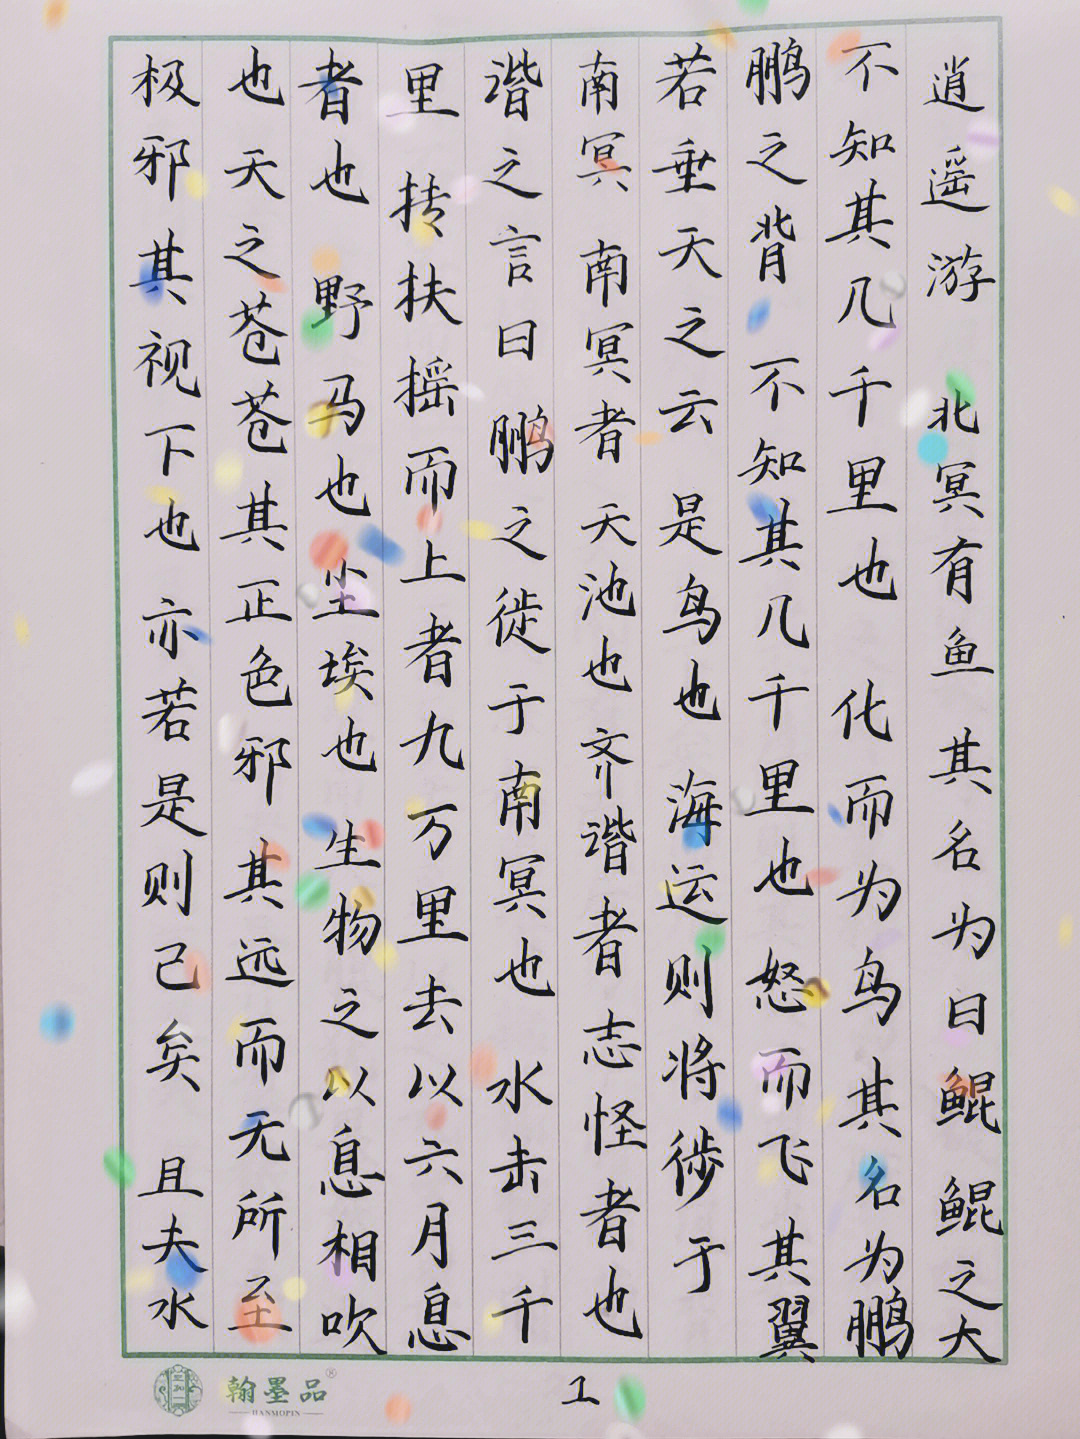 逍遥游 北冥有鱼 其名为曰鲲 鲲之大
不知其几千里也 化而为鸟 其名为鹏
鹏之背 不知其几千里也 怒而飞 其翼
若垂天之云 是鸟也 海运则将徙于
南冥 南冥者 天池也 齐谐者 志怪者也
谐之言曰 鹏之徙于南冥也 水击三千
里 抟扶摇而上者九万里 去以六月息
者也 野马也 尘埃也 生物之以息相吹
也 天之苍苍 其正色邪 其远而无所至
极邪 其视下也 亦若是则己矣 且夫水
翰墨品®
HANMOPIN
1